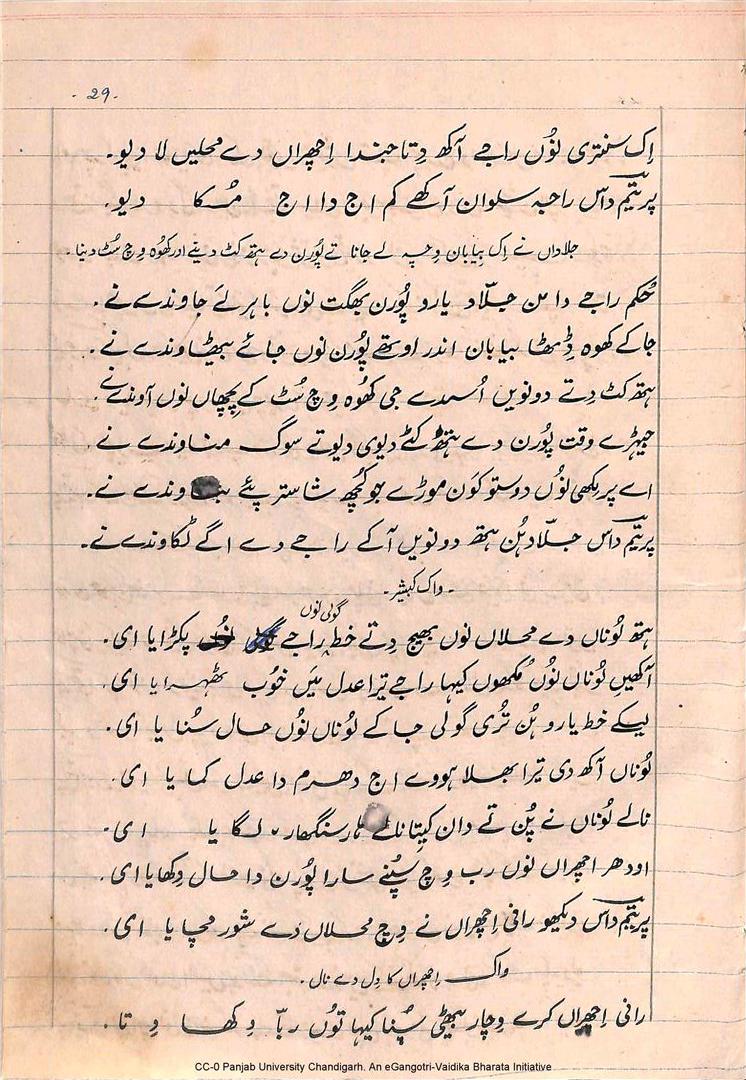 - 29 -
اِک سنتری نوُں راجے آکھ دِتا جندا اِچھراں دے محلیں لا دیو۔
پریتیم داس راجہ سلوان آکھے کم اج دا اج مُسکا دیو۔
جلاداں نے اِک بیابان وچہ لے جانا تے پوُرن دے ہتھ کٹ دینے اور کھوُہ وچ سُٹ دینا۔
حُکم راجے دا من جلّاد یارو پوُرن بھگت نوں باہر لَے جاوندے نے۔
جا کے کھوہ ڈِٹھا بیابان اندر اوتھے پوُرن نوں جائے بیٹھاوندے نے۔
ہتھ کٹ دِتے دونویں اُسدے جی کھُوہ وچ سُٹ کے پچھاں نوں آوندے نے۔
جیہڑے وقت پوُرن دے ہتھ کٹے دیوی دیوتے سوگ مناوندے نے۔
اے پر لکھی نوُں دوستو کَون موڑے جو کُچھ شاستر پئے بتاوندے نے۔
پریتیم داس جلّاد ہُن ہتھ دونویں آکے راجے دے اگے ٹکاوندے نے۔
- واک کبیشر -
ہتھ لوُناں دے محلاں نوں بھیج دِتے خط راجے گولی نوں پکڑایا ای۔
آکھیں لوُناں نوُں مُکھوں کیہا راجے تیرا عدل میَں خوُب ٹھہرایا ای۔
لیکے خط یارو ہُن تُری گولی جا کے لوُناں نوُں حال سُنا یا ای۔
لوُناں آکھ دی تیرا بھلا ہووے اج دھرم دا عدل کمایا ای۔
نالے لوُناں نے پُن تے دان کیتا نالے ہارسنگھار لگایا ای۔
اودھر اچھراں نوں رب وچ سپنے سارا پوُرن دا حال دِکھایا ای۔
پریتیم داس دیکھو رانی اِچھراں نے وچ محلاں دے شور مچایا ای۔
واک اِچھراں کا دِل دے نال۔
رانی اِچھراں کرے وچار بیٹھی سُپنا کیہا توُں ربّا دِکھا دِتا۔
CC-0 Panjab University Chandigarh. An eGangotri-Vaidika Bharata Initiative